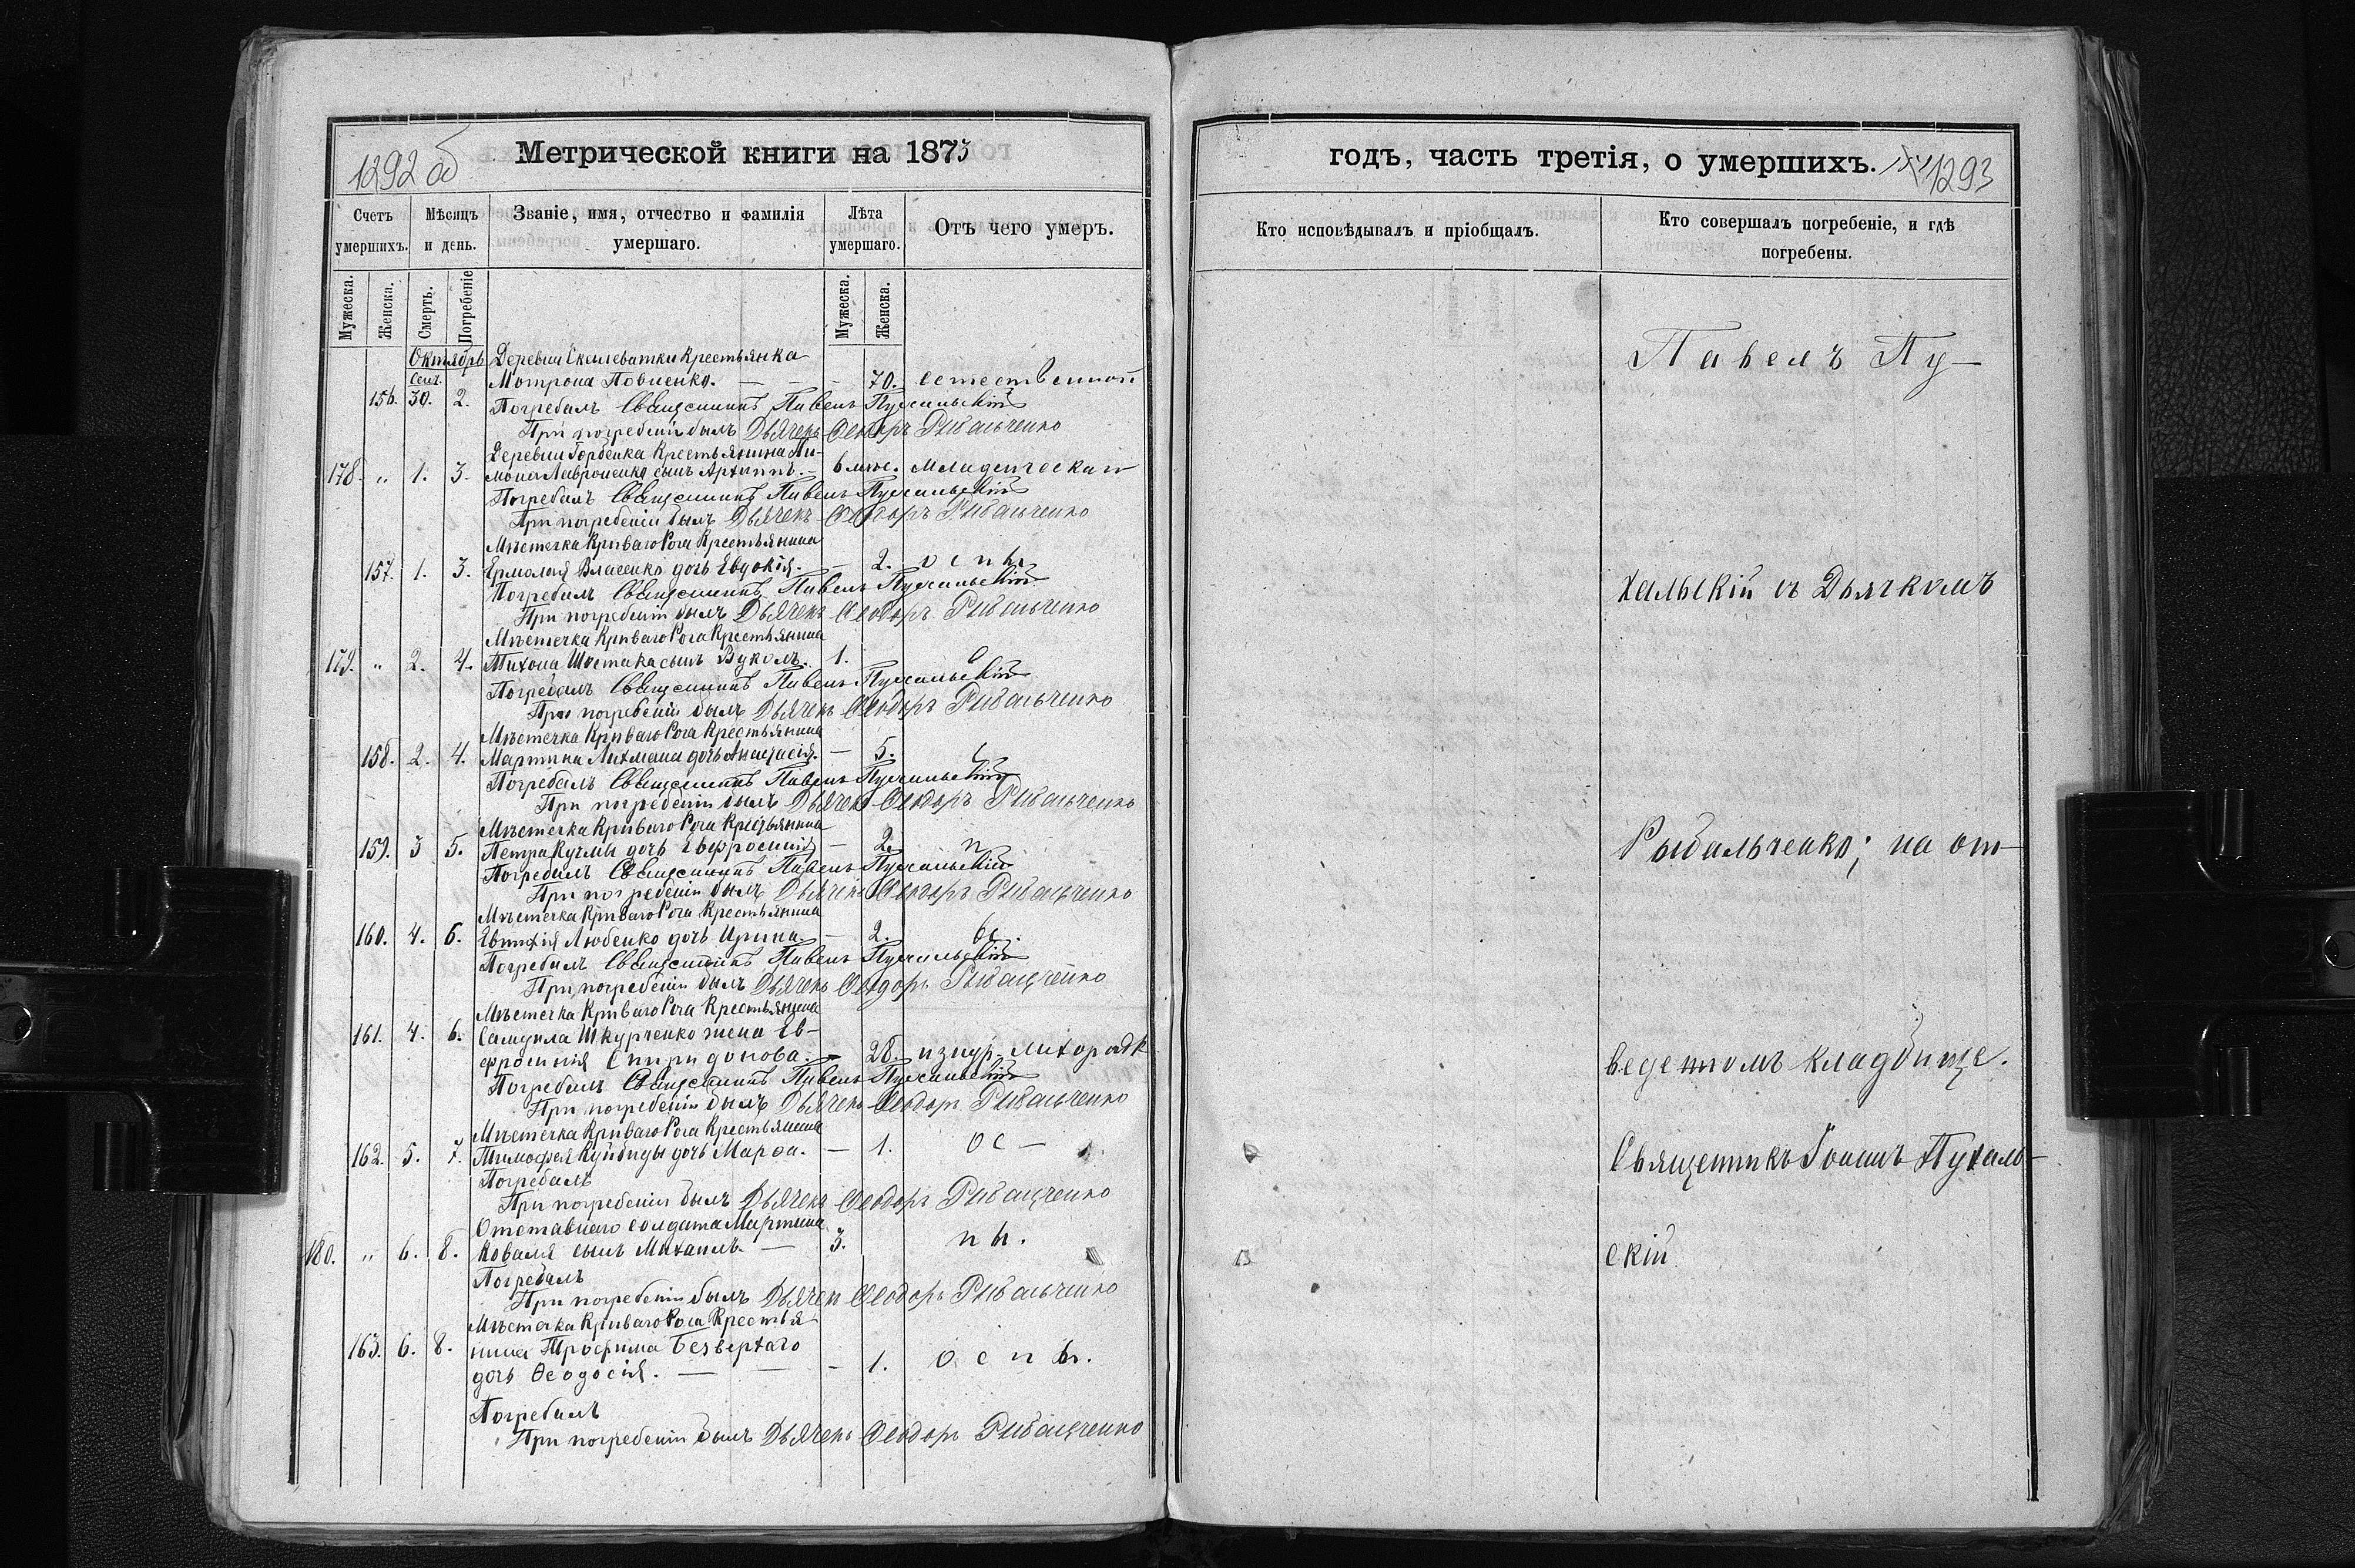 1292 об
Метрической книги на 1873
Счетъ умершихъ.
Мѣсяцъ и день.
Званіе, имя, отчество и фамилія умершаго.
Лѣта умершаго.
Отъ чего умеръ.
Мужеска.
Женска.
Смерть.
Погребеніе
Мужеска.
Женска.
Октябрь Деревни Скелеватки Крестьянка
Сент. Мотрона Повненко. — — — 70. естественной
156. 30. 2.
Погребалъ Священникъ Павелъ Пухальскій
При погребеніи былъ Дьячекъ Ѳеодоръ Рыбальченко
Деревни Горбенка Крестьянина
178. „ 1. 3. сынъ Архиппъ. — 6 мѣс. младенческой
Погребалъ Священникъ Павелъ Пухальскій
При погребеніи былъ Дьячекъ Ѳеодоръ Рыбальченко
Мѣстечка Криваго Рога Крестьянина
157. 1. 3. Ермолая Власенко дочь Евдокія. — 2. оспы
Погребалъ Священникъ Павелъ Пухальскій
При погребеніи былъ Дьячекъ Ѳеодоръ Рыбальченко
Мѣстечка Криваго Рога Крестьянина
179. „ 2. 4. Тихона Шостака сынъ Вуколъ. 1. о
Погребалъ Священникъ Павелъ Пухальскій
При погребеніи былъ Дьячекъ Ѳеодоръ Рыбальченко
Мѣстечка Криваго Рога Крестьянина
158. 2. 4. Мартина Лихмана дочь Анастасія. — 5. с
Погребалъ Священникъ Павелъ Пухальскій
При погребеніи былъ Дьячекъ Ѳеодоръ Рыбальченко
Мѣстечка Криваго Рога Крестьянина
159. 3 5. Петра Кучмы дочь Евфросинія — 2. п
Погребалъ Священникъ Павелъ Пухальскій
При погребеніи былъ Дьячекъ Ѳеодоръ Рыбальченко
Мѣстечка Криваго Рога Крестьянина
160. 4. 6. Евтихія Любенко дочь Ирина. — 2. ы.
Погребалъ Священникъ Павелъ Пухальскій
При погребеніи былъ Дьячекъ Ѳеодоръ Рыбальченко
Мѣстечка Криваго Рога Крестьянина
161. 4. 6. Самуила Шкурченко жена Ев-
фросинія Спиридонова. — 28. изнур. лихорадк
Погребалъ Священникъ Павелъ Пухальскій
При погребеніи былъ Дьячекъ Ѳеодоръ Рыбальченко
Мѣстечка Криваго Рога Крестьянина
162. 5. 7. Тимофея Куйбиды дочь Марѳа. — 1. ос —
Погребалъ
При погребеніи былъ Дьячекъ Ѳеодоръ Рыбальченко
Отставнаго солдата Мартина
180. „ 6. 8. Коваля сынъ Михаилъ. — 3. пы.
Погребалъ
При погребеніи былъ Дьячекъ Ѳеодоръ Рыбальченко
Мѣстечка Криваго Рога Крестья
163. 6. 8. нина Трофима Безверхаго
дочь Ѳеодосія. — — — 1. оспы.
Погребалъ
При погребеніи былъ Дьячекъ Ѳеодоръ Рыбальченко
годъ, часть третія, о умершихъ.
1293
Кто исповѣдывалъ и пріобщалъ.
Кто совершалъ погребеніе, и гдѣ погребены.
Павелъ Пу-
хальскій съ Дьячкомъ
Рыбальченко; на от-
веденномъ кладбище.
Священникъ Іоаннъ Пухаль-
скій